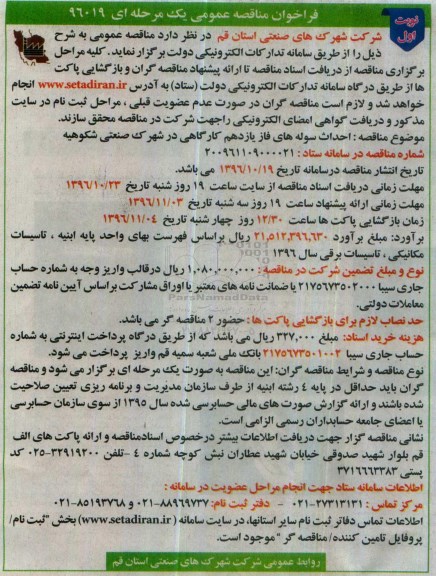 فراخوان مناقصه عمومی یک مرحله ای ۹۶۰۱۹
نوبت اول
شرکت شهرک های صنعتی استان قم در نظر دارد مناقصه عمومی به شرح
ذیل را از طریق سامانه تدارکات الکترونیکی دولت برگزار نماید. کلیه مراحل
برگزاری مناقصه از دریافت اسناد مناقصه تا ارائه پیشنهاد مناقصه گران و بازگشایی پاکت
ها از طریق درگاه سامانه تدارکات الکترونیکی دولت (ستاد) به آدرس www.setadiran.ir انجام
خواهد شد و لازم است مناقصه گران در صورت عدم عضویت قبلی ، مراحل ثبت نام در سایت
مذکور و دریافت گواهی امضای الکترونیکی را جهت شرکت در مناقصه محقق سازند.
موضوع مناقصه : احداث سوله های فاز یازدهم کارگاهی در شهرک صنعتی شکوهیه
شماره مناقصه در سامانه ستاد : ۲۰۰۹۶۱۱۰۹۰۰۰۰۲۱
تاریخ انتشار مناقصه در سامانه تاریخ ۱۳۹۶/۱۰/۱۹ می باشد.
مهلت زمانی دریافت اسناد مناقصه از سایت ساعت ۱۹ روز شنبه تاریخ ۱۳۹۶/۱۰/۲۳
مهلت زمانی ارائه پیشنهاد ساعت ۱۹ روز سه شنبه تاریخ ۱۳۹۶/۱۱/۰۳
زمان بازگشایی پاکت ها ساعت ۱۲/۳۰ روز چهار شنبه تاریخ ۱۳۹۶/۱۱/۰۴
برآورد: مبلغ برآورد ۲۱,۵۱۲,۳۹۶,۶۳۰ ریال براساس فهرست بهای واحد پایه ابنیه ، تاسیسات
مکانیکی ، تاسیسات برقی سال ۱۳۹۶
نوع و مبلغ تضمین شرکت در مناقصه : ۱,۰۸۰,۰۰۰,۰۰۰ ریال در قالب واریز وجه به شماره حساب
جاری سیبا ۲۱۷۵۶۷۳۵۰۲۰۰۰ یا ضمانت نامه های معتبر یا اوراق مشارکت براساس آیین نامه تضمین
معاملات دولتی.
ParsNamadData
حد نصاب لازم برای بازگشایی پاکت ها : حضور ۲ مناقصه گر می باشد.
هزینه خرید اسناد: مبلغ ۳۲۷,۰۰۰ ریال می باشد که از طریق درگاه پرداخت اینترنتی به شماره
حساب جاری سیبا ۲۱۷۵۶۷۳۵۰۱۰۰۲ بانک ملی شعبه سمیه قم واریز پرداخت می شود.
نوع مناقصه و شرایط مناقصه گران: این مناقصه به صورت یک مرحله ای برگزار می شود و مناقصه
گران باید حداقل در پایه ۴ رشته ابنیه از طرف سازمان مدیریت و برنامه ریزی تعیین صلاحیت
شده باشند و ارائه گزارش صورت های مالی حسابرسی شده سال ۱۳۹۵ از سوی سازمان حسابرسی
یا اعضای جامعه حسابداران رسمی الزامی است.
نشانی مناقصه گزار جهت دریافت اطلاعات بیشتر درخصوص اسناد مناقصه و ارائه پاکت های الف
قم بلوار شهید صدوقی خیابان شهید عطاران نبش کوچه شماره ۴ -تلفن ۳۲۹۱۹۲۰۰-۰۲۵ کد
پستی ۳۷۱۶۶۶۳۳۸۳
اطلاعات سامانه ستاد جهت انجام مراحل عضویت در سامانه :
مرکز تماس : ۲۷۳۱۳۱۳۱-۰۲۱ - دفتر ثبت نام: ۸۸۹۶۹۷۳۷-۰۲۱ و ۸۵۱۹۳۷۶۸-۰۲۱
اطلاعات تماس دفاتر ثبت نام سایر استانها، در سایت سامانه ( www.setadiran.ir) بخش "ثبت نام/
پروفایل تامین کننده/ مناقصه گر " موجود است.
روابط عمومی شرکت شهرک های صنعتی استان قم